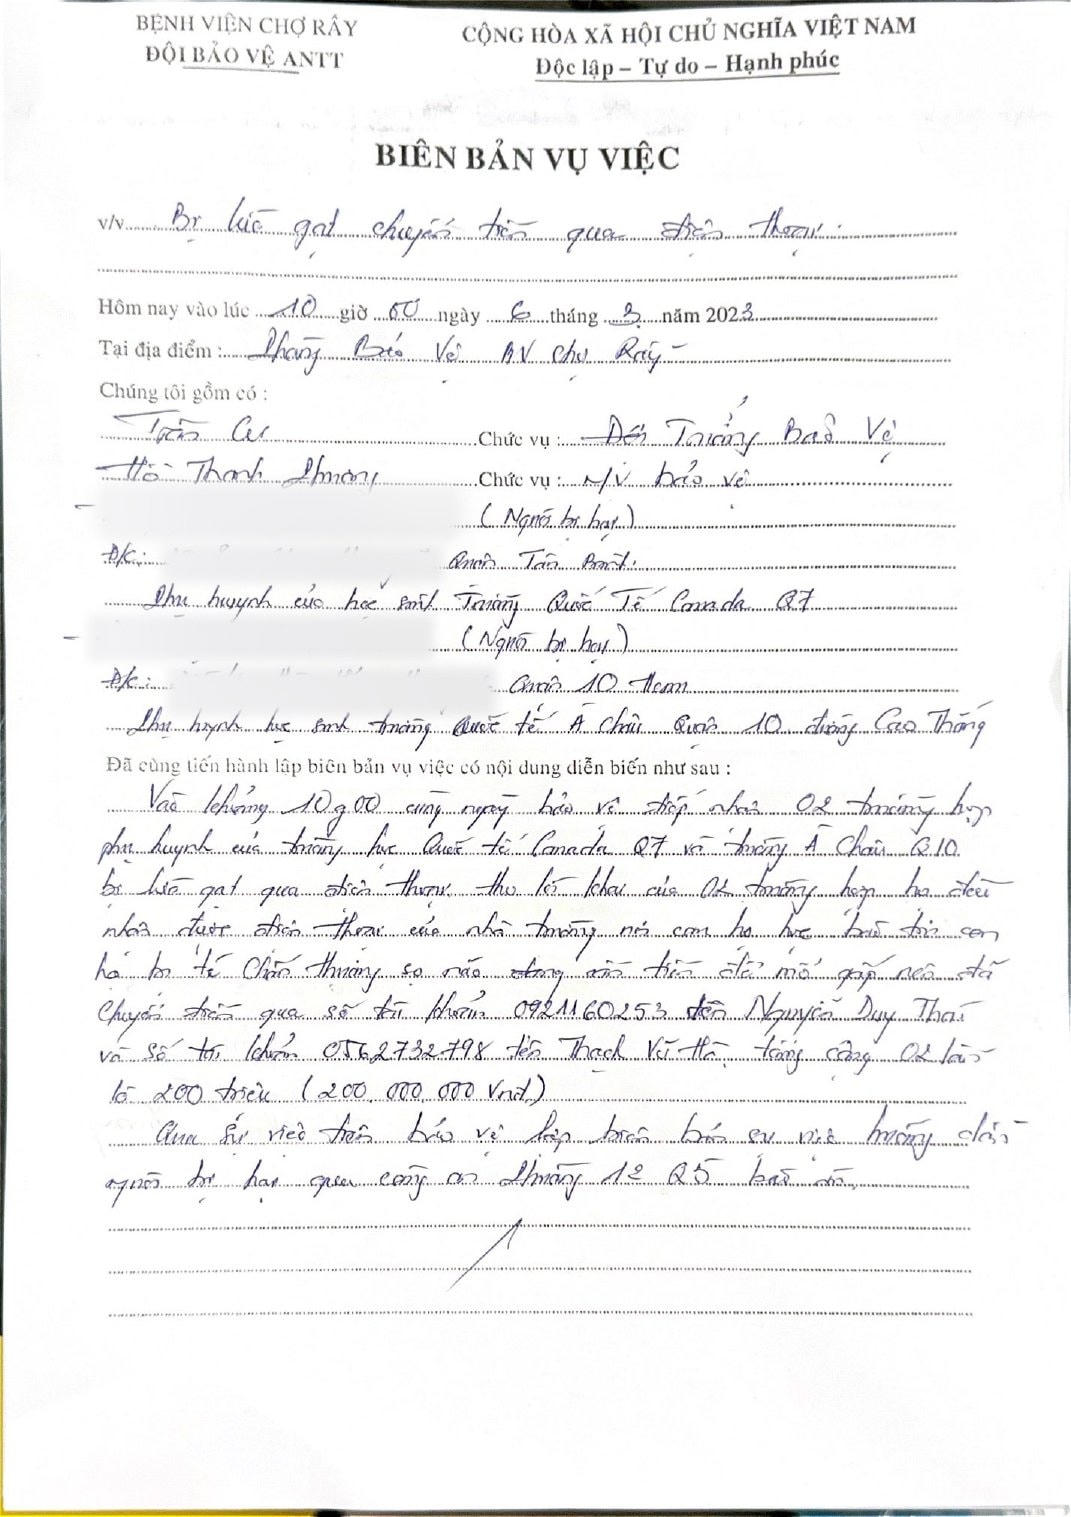 BỆNH VIỆN CHỢ RẪY
ĐỘI BẢO VỆ ANTT
CỘNG HÒA XÃ HỘI CHỦ NGHĨA VIỆT NAM
Độc lập – Tự do – Hạnh phúc
BIÊN BẢN VỤ VIỆC
v/v Bị lừa gạt chuyển tiền qua điện thoại.
Hôm nay vào lúc 10 giờ 00 ngày 6 tháng 3 năm 2023
Tại địa điểm : Phòng Bảo Vệ BV Chợ Rẫy
Chúng tôi gồm có :
Trần Chức vụ : Đội Trưởng Bảo Vệ
Hồ Thanh Phương Chức vụ : N/V bảo vệ
- (Người bị hại)
Đ/c: Quận Tân Bình.
Phụ huynh của học sinh Trường Quốc Tế Canada Q7
- (Người bị hại)
Đ/c: Quận 10 Hcm
Phụ huynh học sinh trường Quốc tế Á Châu Quận 10 đường Cao Thắng
Đã cùng tiến hành lập biên bản vụ việc có nội dung diễn biến như sau :
Vào khoảng 10g00 cùng ngày bảo vệ tiếp nhận 02 trường hợp
phụ huynh của trường học Quốc tế Canada Q7 và trường Á Châu Q10
bị lừa gạt qua điện thoại. theo lời khai của 02 trường hợp họ đều
nhận được điện thoại của nhà trường nói con họ học báo tin con
họ bị té Chấn thương sọ não cần tiền để mổ gấp nên đã
chuyển tiền qua số tài khoản 0921160253 tên Nguyễn Duy Thái
và số tài khoản 0562732798 tên Thạch Vũ Hà tổng cộng 02 lần
là 200 triệu (200.000.000 Vnđ)
Qua sự việc trên bảo vệ lập biên bản sự việc hướng dẫn
người bị hại qua công an Phường 12 Q5 báo án.